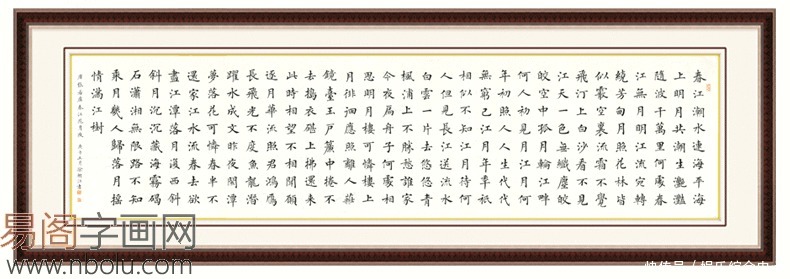 春江潮水連海平海
上明月共潮生灩灩
隨波千萬里何處春
江無月明江流宛轉
繞芳甸月照花林皆
似霰空裏流霜不覺
飛汀上白沙看不見
江天一色無纖塵皎
皎空中孤月輪江畔
何人初見月江月何
年初照人人生代代
無窮已江月年年祗
相似不知江月待何
人但見長江送流水
白雲一片去悠悠青
楓浦上不勝愁誰家
今夜扁舟子何處相
思明月樓可憐樓上
月徘徊應照離人妝
鏡臺玉戶簾中捲不
去搗衣碪上拂還來
此時相望不相聞願
逐月華流照君鴻雁
長飛光不度魚龍潛
躍水成文昨夜閒潭
夢落花可憐春半不
還家江水流春去欲
盡江潭落月復西斜
斜月沉沉藏海霧碣
石瀟湘無限路不知
乘月幾人歸落月搖
情滿江樹
唐張若虛春江花月夜
易阁字画网
www.nbolu.com